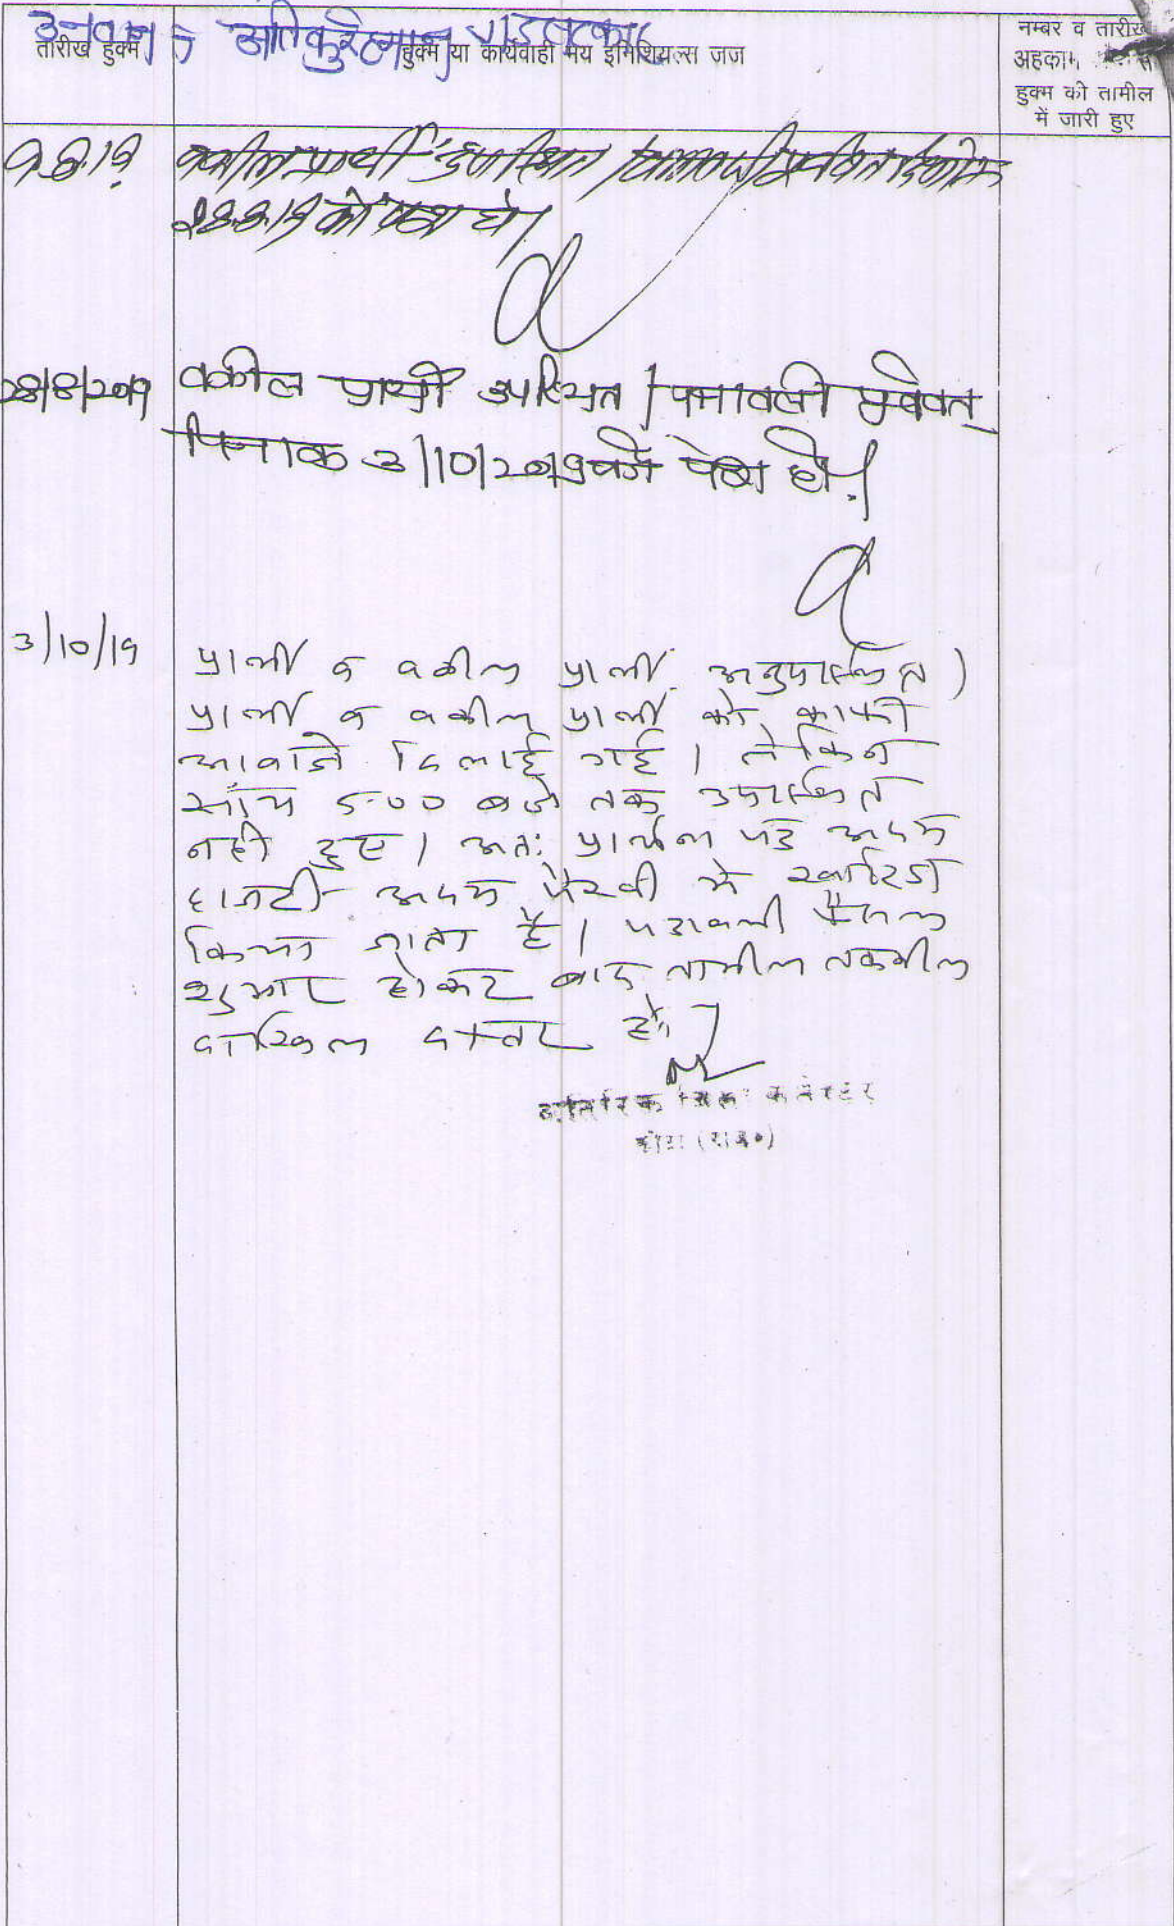 उनवान :- अतिकुर्रहमान
तारीख हुक्म
हुक्म या कार्यवाही मय इनिशियल्स जज
नम्बर व तारीख
अहकाम
हुक्म की तामील
में जारी हुए
वकील प्रार्थी उपस्थित। पत्रावली पूर्ववत दिनांक
28.8.19 को पेश हो।
28/8/2019 वकील प्रार्थी उपस्थित। पत्रावली पूर्ववत्
दिनांक 3/10/2019 को पेश हो।
3/10/19 प्रार्थी व वकील प्रार्थी अनुपस्थित।
प्रार्थी व वकील प्रार्थी को काफी
आवाजे दिलाई गई। लेकिन
सांय 5-00 बजे तक उपस्थित
नही हुए। अतः प्रार्थना पत्र अदम
हाजरी अदम पैरवी मे खारिज
किया जाता है। पत्रावली फैसल
शुमार होकर बाद तामील तकमील
दाखिल दफ्तर हो।
अतिरिक्त जिला कलेक्टर
(राज०)